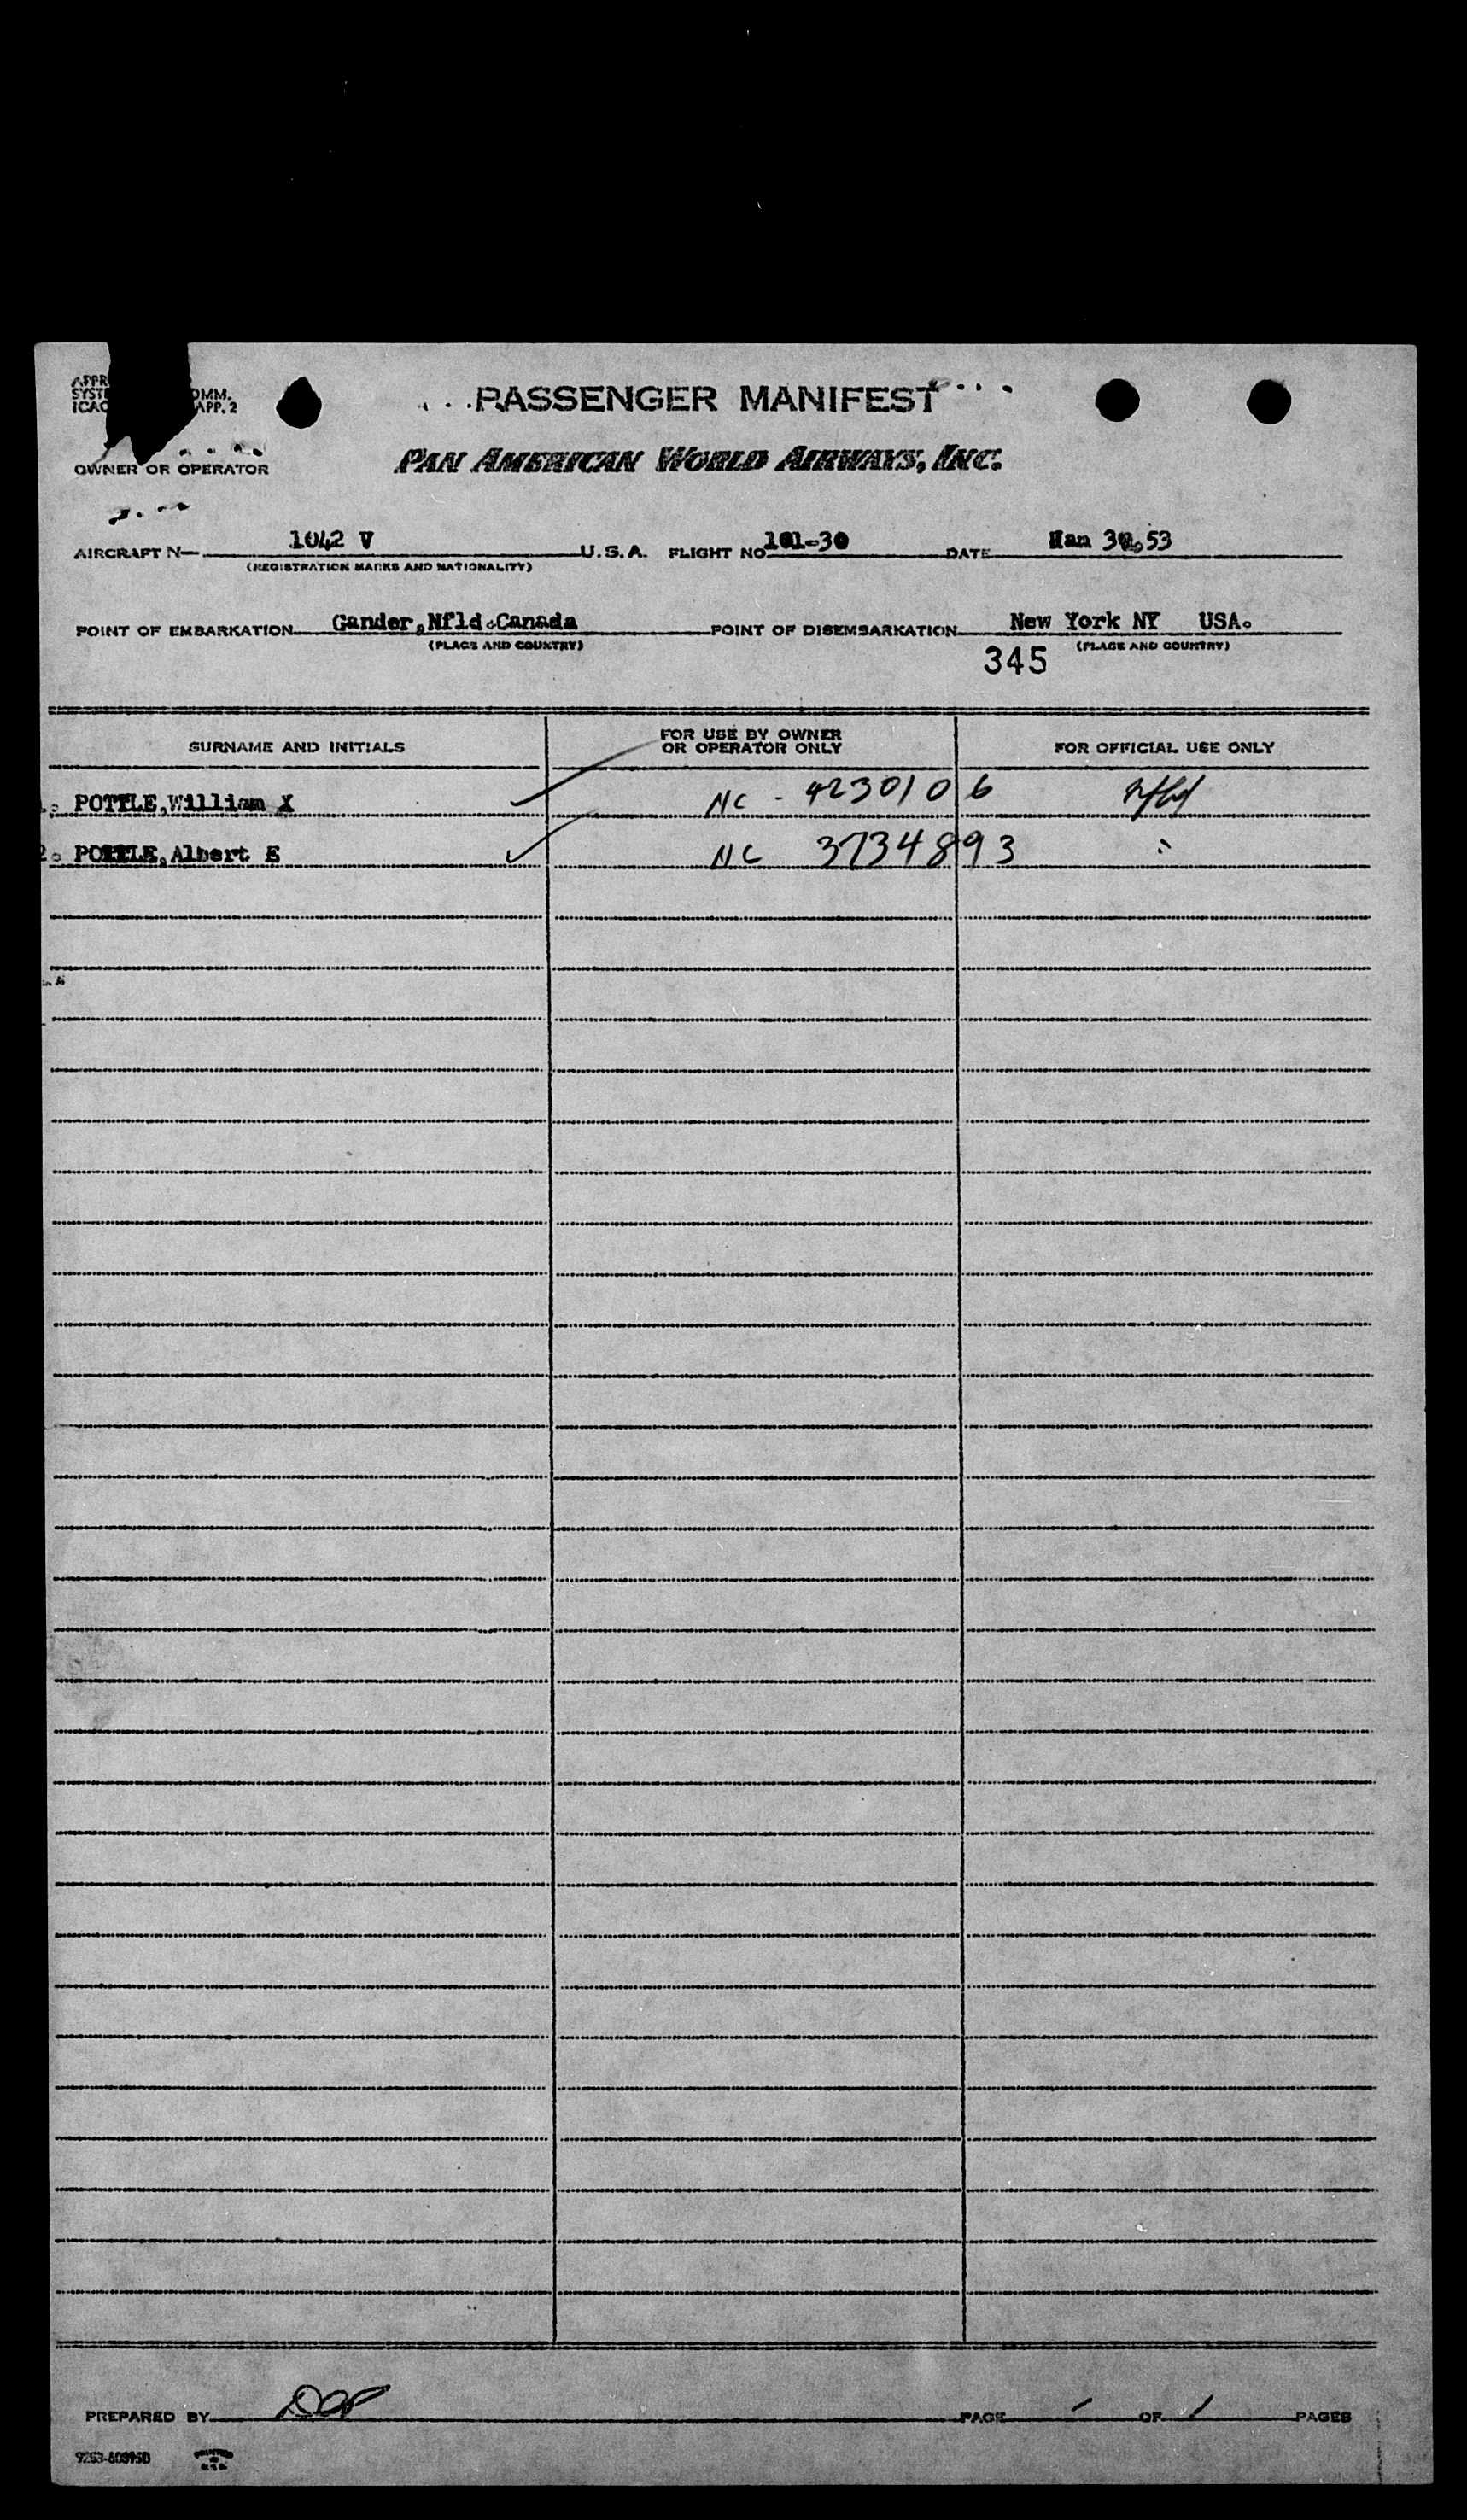 APPR
SYST OMM.
ICAO APP. 2
PASSENGER MANIFEST
OWNER OR OPERATOR PAN AMERICAN WORLD AIRWAYS, INC.
AIRCRAFT N— 1042 V U.S.A. FLIGHT NO 101-30 DATE 53
(REGISTRATION MARKS AND NATIONALITY)
POINT OF EMBARKATION Gander, Nfld. Canada POINT OF DISEMBARKATION New York NY USA.
(PLACE AND COUNTRY) (PLACE AND COUNTRY)
345
SURNAME AND INITIALS FOR USE BY OWNER OR OPERATOR ONLY FOR OFFICIAL USE ONLY
POTTLE, William X NC - 4230106 Nfld
2. POTTLE, Albert E NC 3734893 "
PREPARED BY PAGE 1 OF 1 PAGES
PRINTED IN U.S.A.